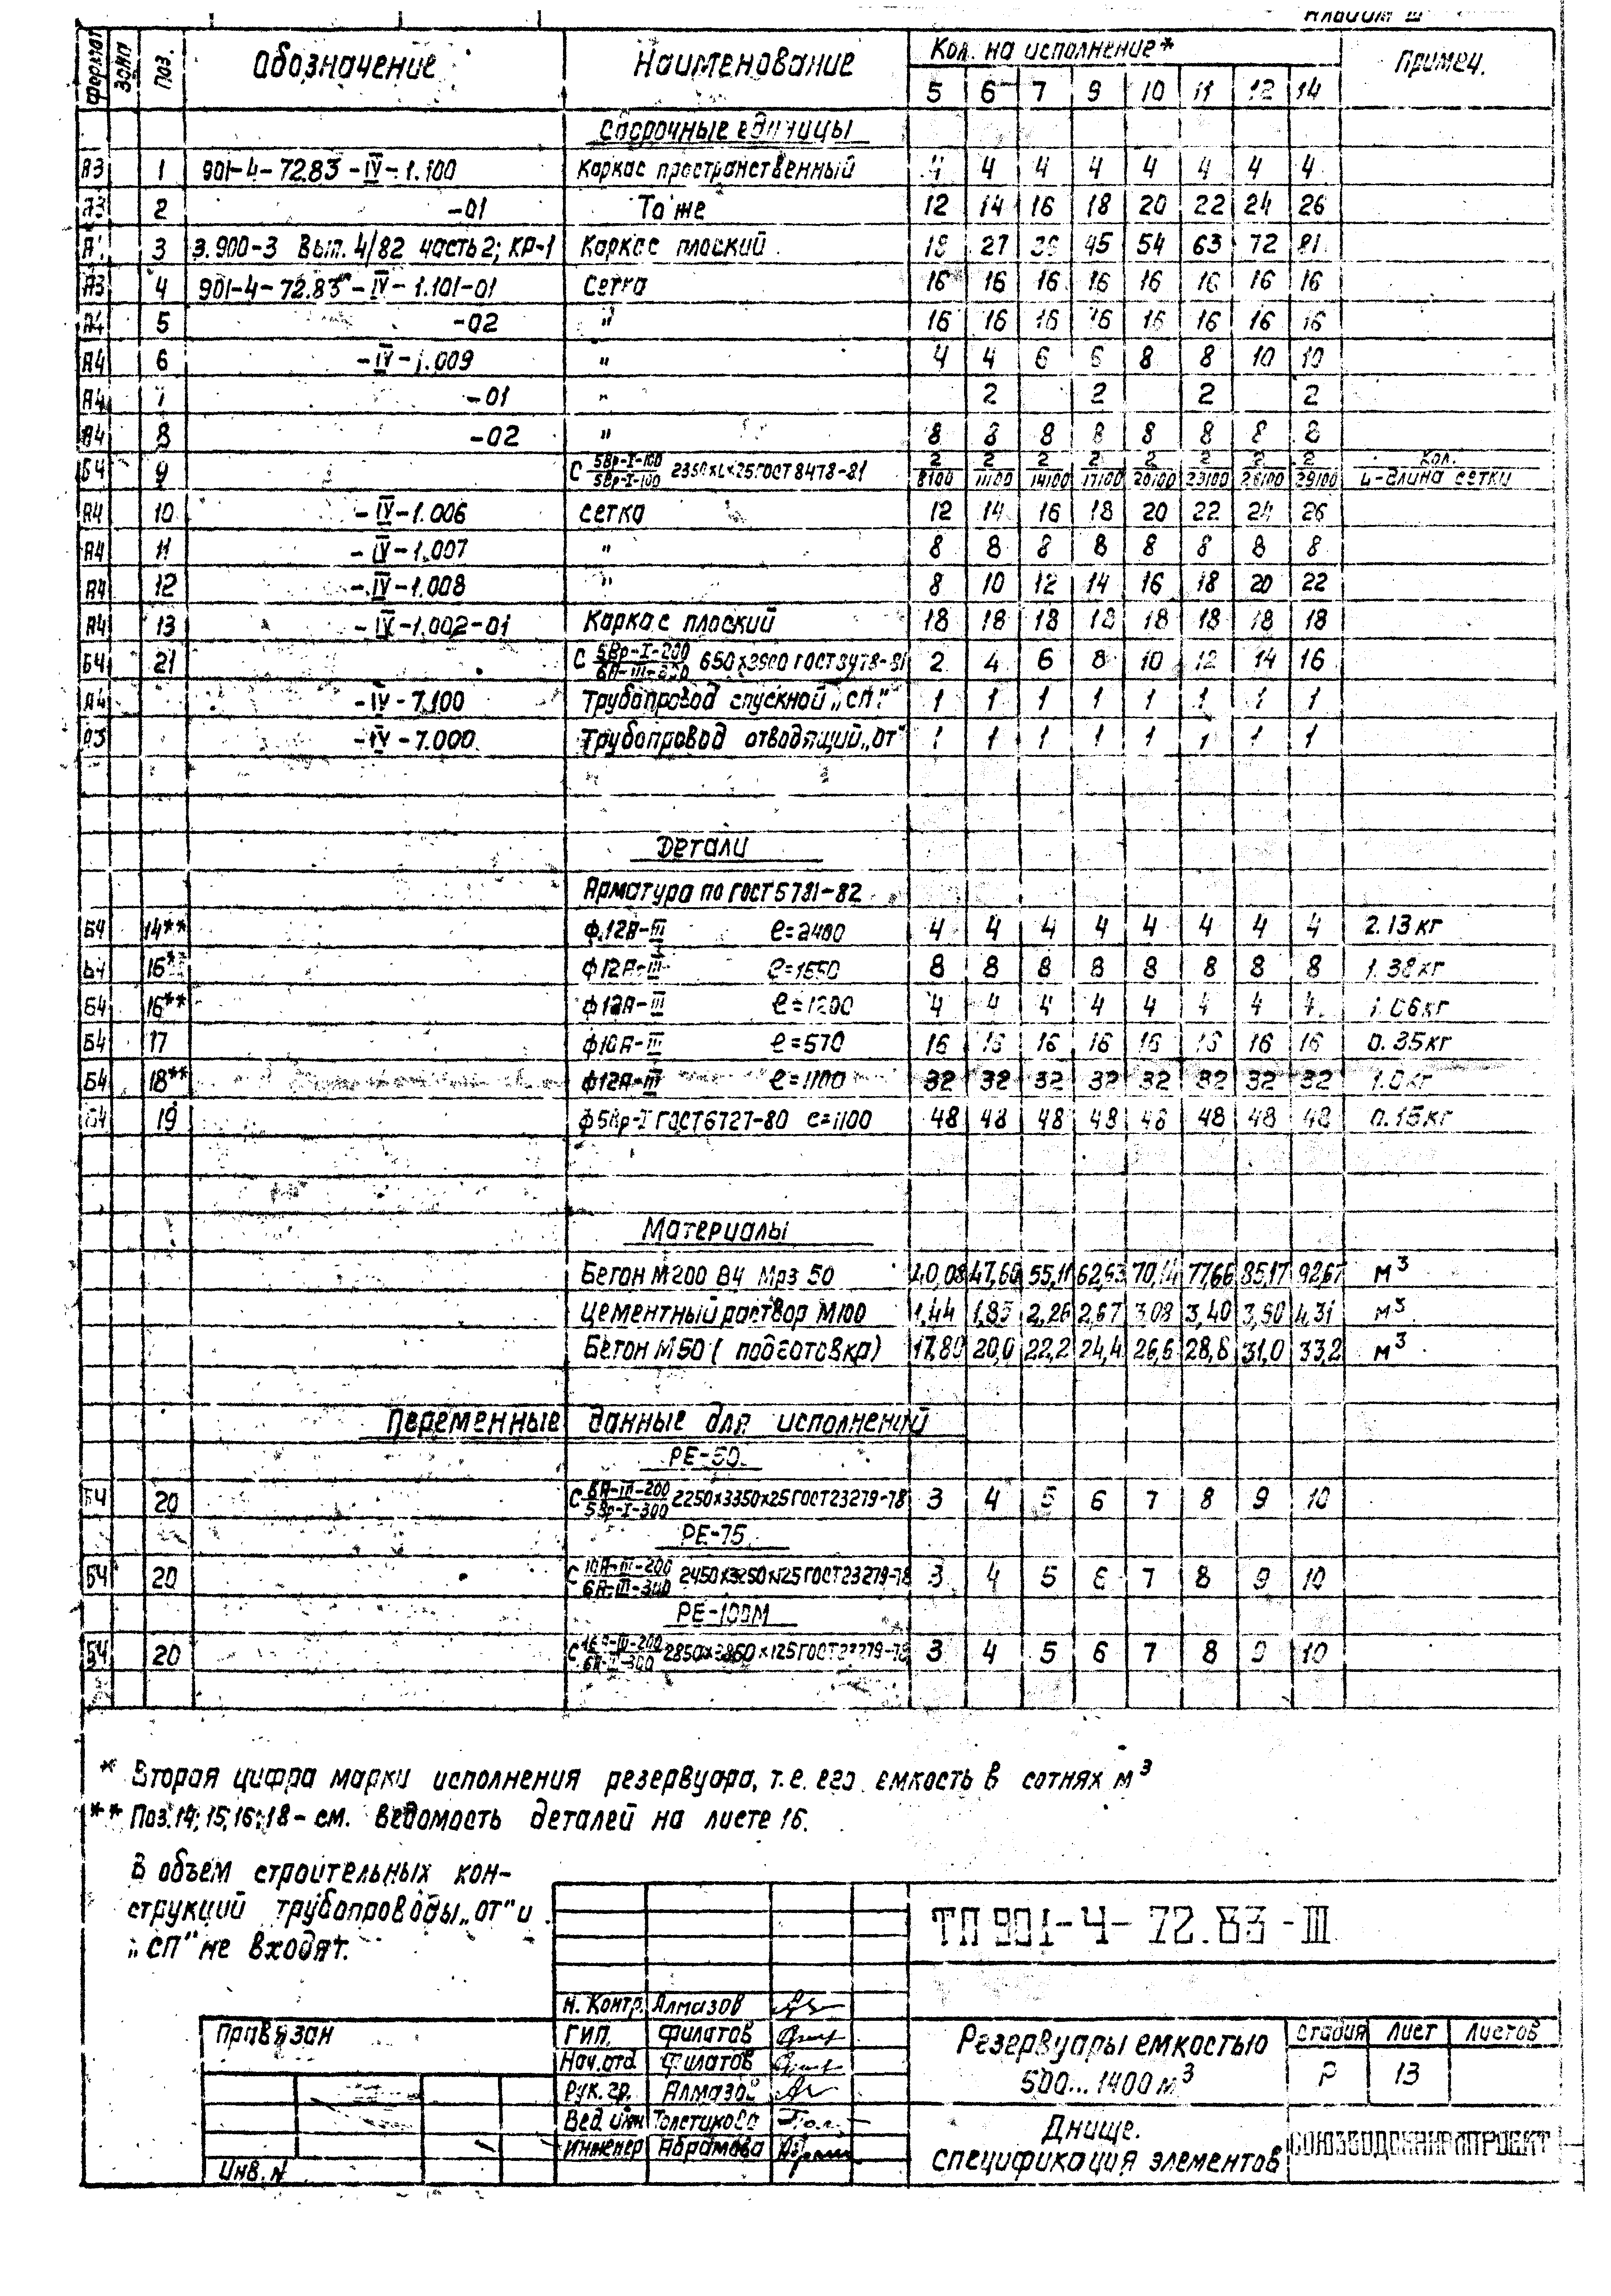 Альбом III
Формат Зона Поз. Обозначение Наименование Кол. на исполнение* Примеч.
5 6 7 9 10 11 12 14
Сборочные единицы
А3 1 901-4-72.83-IV-1.100 Каркас пространственный 4 4 4 4 4 4 4 4
А3 2 -01 То же 12 14 16 18 20 22 24 26
3 3.900-3 Вып. 4/82 часть 2; КР-1 Каркас плоский 18 27 36 45 54 63 72 81
А3 4 901-4-72.83-IV-1.101-01 Сетка 16 16 16 16 16 16 16 16
А4 5 -02 " 16 16 16 16 16 16 16 16
А4 6 -IV-1.009 " 4 4 6 6 8 8 10 10
А4 7 -01 " 2 2 2 2
А4 8 -02 " 8 8 8 8 8 8 8 8
Б4 9 С 5Вр-I-100/5Вр-I-100 2350×L×25 ГОСТ 8478-81 2/8100 2/11100 2/14100 2/17100 2/20100 2/23100 2/26100 2/29100 Кол./L-длина сетки
А4 10 -IV-1.006 сетка 12 14 16 18 20 22 24 26
А4 11 -IV-1.007 " 8 8 8 8 8 8 8 8
А4 12 -IV-1.008 " 8 10 12 14 16 18 20 22
А4 13 -IV-1.002-01 Каркас плоский 18 18 18 18 18 18 18 18
Б4 21 С 5Вр-I-200/6А-III-200 650×3900 ГОСТ 8478-81 2 4 6 8 10 12 14 16
А4 -IV-7.100 Трубопровод спускной „СП" 1 1 1 1 1 1 1 1
А3 -IV-7.000 Трубопровод отводящий „ОТ" 1 1 1 1 1 1 1 1
Детали
Арматура по ГОСТ 5781-82
Б4 14** ф12А-III ℓ=2400 4 4 4 4 4 4 4 4 2.13кг
Б4 ф12А-III ℓ=1550 8 8 8 8 8 8 8 8 1.38кг
Б4 16** ф12А-III ℓ=1200 4 4 4 4 4 4 4 4 1.06кг
Б4 17 ф10А-III ℓ=570 16 16 16 16 16 16 16 16 0.35кг
Б4 18** ф12А-III ℓ=1100 32 32 32 32 32 32 32 32 1.0кг
Б4 19 ф5Вр-I ГОСТ 6727-80 ℓ=1100 48 48 48 48 48 48 48 48 0.15кг
Материалы
Бетон М200 В4 Мрз 50 40,08 47,60 55,11 62,63 70,14 77,66 85,17 92,67 м³
Цементный раствор М100 1,44 1,85 2,26 2,67 3,08 3,40 3,90 4,31 м³
Бетон М50 (подготовка) 17,80 20,0 22,2 24,4 26,6 28,8 31,0 33,2 м³
Переменные данные для исполнений
РЕ-50
Б4 20 С 8А-III-200/5Вр-I-300 2250×3350×25 ГОСТ 23279-78 3 4 5 6 7 8 9 10
РЕ-75
Б4 20 С 10А-III-200/6А-III-300 2450×3250×125 ГОСТ 23279-78 3 4 5 6 7 8 9 10
РЕ-100М
Б4 20 ГОСТ 23279-78 3 4 5 6 7 8 9 10
* Вторая цифра марки исполнения резервуара, т.е. его емкость в сотнях м³
** Поз. 14; 15; 16; 18 - см. ведомость деталей на листе 16.
В объем строительных кон-
струкций трубопроводы „ОТ" и
„СП" не входят.
ТП 901-4-72.83-III
Н. Контр. Алмазов
Привязан ГИП. Филатов Резервуары емкостью Стадия Лист Листов
Нач.отд Филатов 500...1400 м³ Р 13
Рук. гр. Алмазов
Вед инж Толстикова Днище.
Инженер Абрамова Спецификация элементов СОЮЗВОДОКАНАЛПРОЕКТ
Инв. №